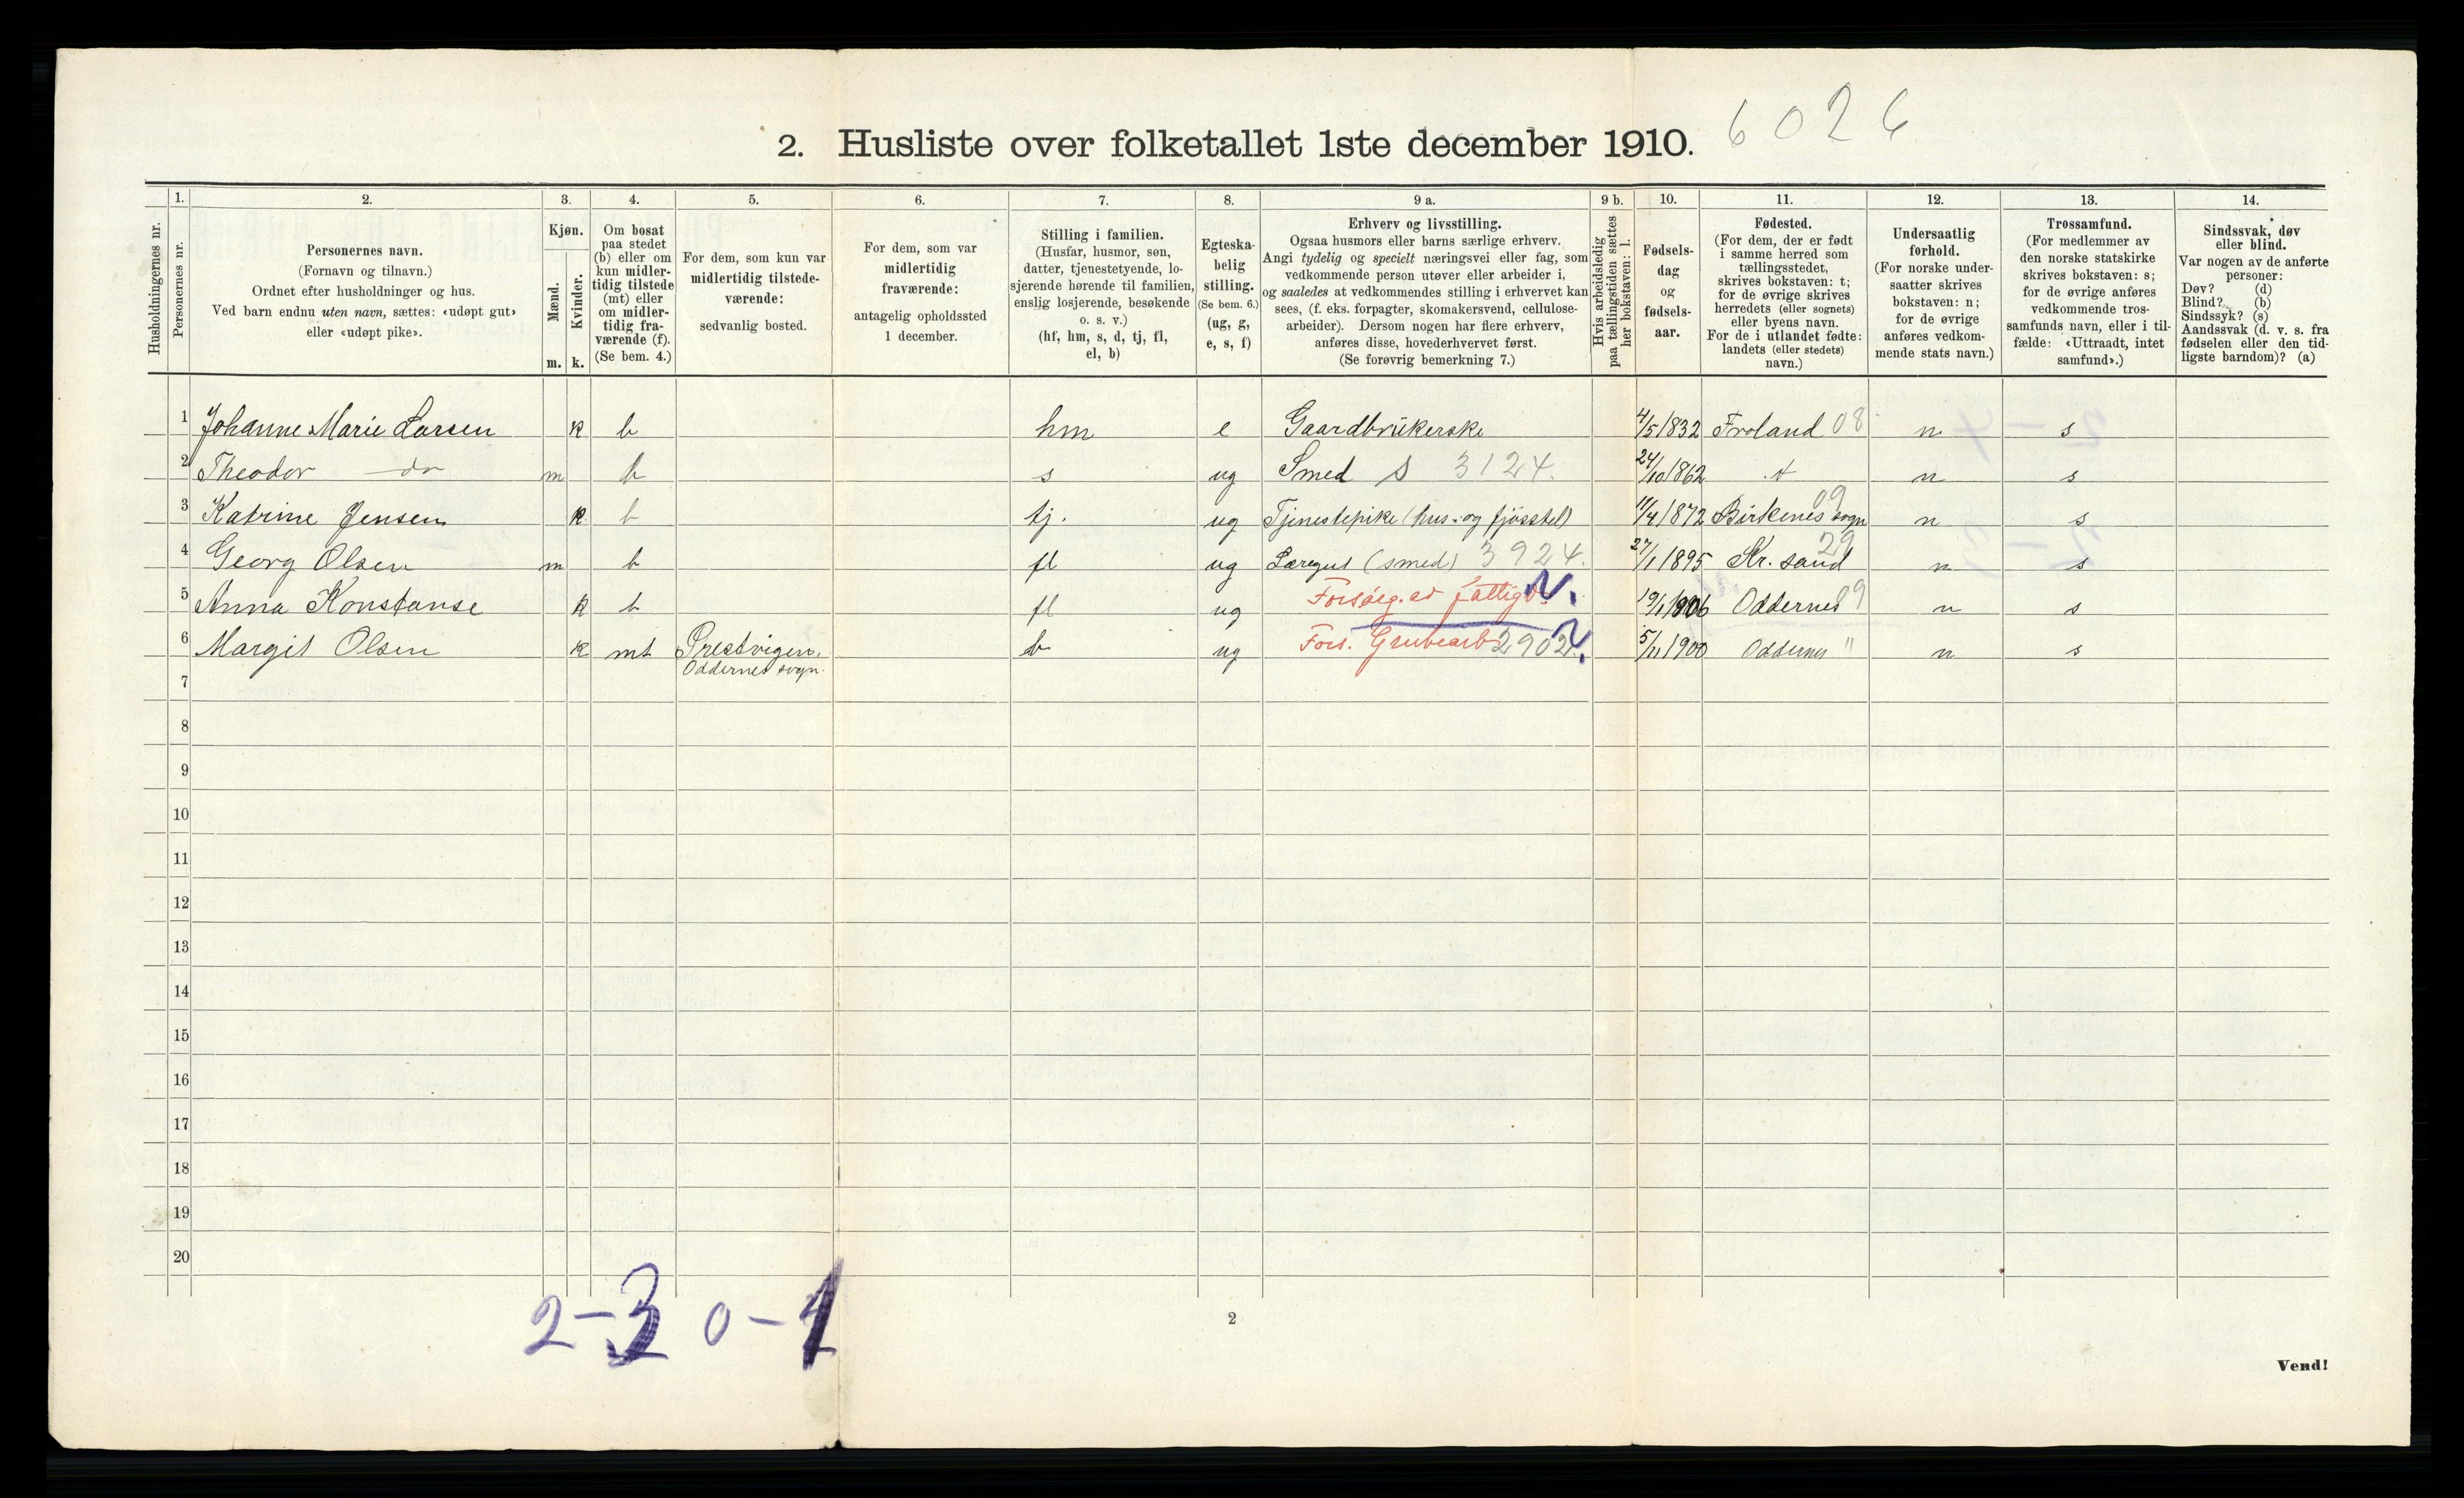 6026
2. Husliste over folketallet 1ste december 1910.
Husholdningernes nr.
1.
Personernes nr.
2.
Personernes navn.
(Fornavn og tilnavn.)
Ordnet efter husholdninger og hus.
Ved barn endnu uten navn, sættes: «udøpt gut»
eller «udøpt pike».
3.
Kjøn.
Mænd.
Kvinder.
m. k.
4.
Om bosat
paa stedet
(b) eller om
kun midler-
tidig tilstede
(mt) eller
om midler-
tidig fra-
værende (f).
(Se bem. 4.)
5.
For dem, som kun var
midlertidig tilstede-
værende:
sedvanlig bosted.
6.
For dem, som var
midlertidig
fraværende:
antagelig opholdssted
1 december.
7.
Stilling i familien.
(Husfar, husmor, søn,
datter, tjenestetyende, lo-
sjerende hørende til familien,
enslig losjerende, besøkende
o. s. v.)
(hf, hm, s, d, tj, fl,
el, b)
8.
Egteska-
belig
stilling.
(Se bem. 6.)
(ug, g,
e, s, f)
9 a.
Erhverv og livsstilling.
Ogsaa husmors eller barns særlige erhverv.
Angi tydelig og specielt næringsvei eller fag, som
vedkommende person utøver eller arbeider i,
og saaledes at vedkommendes stilling i erhvervet kan
sees, (f. eks. forpagter, skomakersvend, cellulose-
arbeider). Dersom nogen har flere erhverv,
anføres disse, hovederhvervet først.
(Se forøvrig bemerkning 7.)
9 b.
Hvis arbeidsledig
paa tællingstiden sættes
her bokstaven: l.
10.
Fødsels-
dag
og
fødsels-
aar.
11.
Fødested.
(For dem, der er født
i samme herred som
tællingsstedet,
skrives bokstaven: t;
for de øvrige skrives
herredets (eller sognets)
eller byens navn.
For de i utlandet fødte:
landets (eller stedets)
navn.)
12.
Undersaatlig
forhold.
(For norske under-
saatter skrives
bokstaven: n;
for de øvrige
anføres vedkom-
mende stats navn.)
13.
Trossamfund.
(For medlemmer av
den norske statskirke
skrives bokstaven: s;
for de øvrige anføres
vedkommende tros-
samfunds navn, eller i til-
fælde: «Uttraadt, intet
samfund».)
14.
Sindssvak, døv
eller blind.
Var nogen av de anførte
personer:
Døv? (d)
Blind? (b)
Sindssyk? (s)
Aandssvak (d. v. s. fra
fødselen eller den tid-
ligste barndom)? (a)
1 Johanne Marie Larsen k b hm e Gaardbrukerske 4/5 1832 Froland 08 n s
2 Theodor do m b s ug Smed S 3124. 24/10 1862 t n s
3 Katrine Jensen k b tj. ug Tjenestepike (hus- og fjøsstel) 11/4 1872 Birkenes sogn 09 n s
4 Georg Olsen m b fl ug Læregut (smed) 3924. 27/1 1895 Kr. sand 29 n s
5 Anna Konstanse k b fl ug Forsørg. av fattigv. 19/1 1906 Oddernes 09 n s
6 Margit Olsen k mt Prestvigen, b ug Fors. Grubearb 2902. 5/11 1900 Oddernes " n s
Oddernes sogn.
7
8
9
10
11
12
13
14
15
16
17
18
19
20
2-3 0-1
2
Vend!